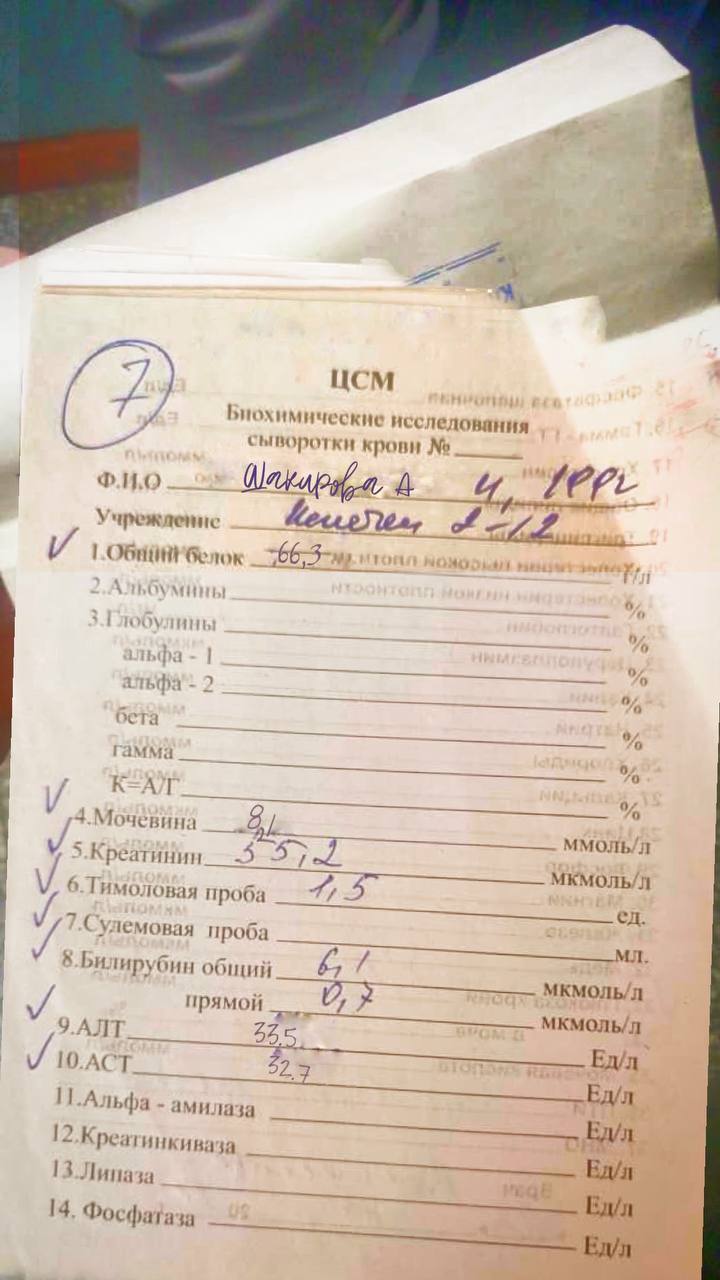 7
ЦСМ
Биохимические исследования
сыворотки крови №
Ф.И.О Шакирова А
Учреждение 2-12
1.Общий белок 66,3 г/л
2.Альбумины %
3.Глобулины %
альфа - 1 %
альфа - 2 %
бета %
гамма %
К=А/Г %
4.Мочевина 8,1 ммоль/л
5.Креатинин 55,2 мкмоль/л
6.Тимоловая проба 1,5 ед.
7.Сулемовая проба мл.
8.Билирубин общий 6,1 мкмоль/л
прямой 0,7 мкмоль/л
9.АЛТ 33.5 Ед/л
10.АСТ 32.7 Ед/л
11.Альфа - амилаза Ед/л
12.Креатинкиваза Ед/л
13.Липаза Ед/л
14. Фосфатаза Ед/л